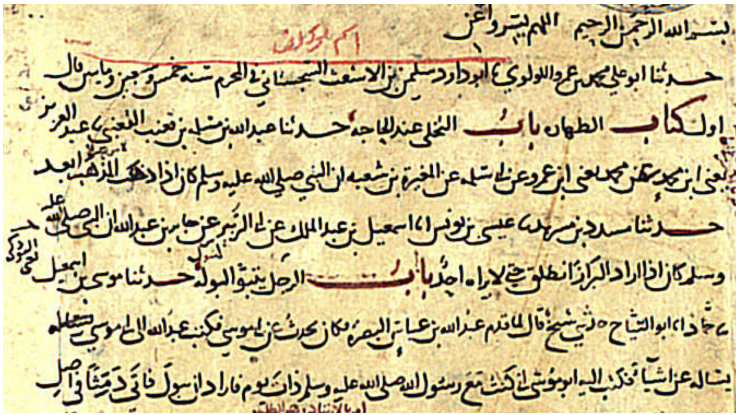 بسم الله الرحمن الرحيم اللهم يسر واعن
حدثنا ابو علي محمد بن عمرو اللولوي نا ابو داود سليمن بن الاشعث السجستاني في المحرم سنه خمس وسبعين ومايتين قال
اول كتاب الطهاره باب التخلي عند الحاجه حدثنا عبد الله بن مسلمه بن قعنب القعنبي نا عبد العزيز
يعني ابن محمد عن محمد يعني ابن عمرو عن ابي سلمه عن المغيرة بن شعبه ان النبي صلى الله عليه وسلم كان اذا ذهب المذهب ابعد
حدثنا مسدد بن مسرهد نا عيسى بن يونس انا اسمعيل بن عبد الملك عن ابي الزبير عن جابر بن عبد الله ان النبي صلى الله عليه
وسلم كان اذا اراد البراز انطلق حتى لا يراه احد باب الرجل يتبوا لبوله حدثنا موسى بن اسمعيل
نا حماد انا ابو التياح حدثني شيخ قال لما قدم عبد الله بن عباس البصره فكان يحدث عن ابي موسى فكتب عبد الله الى ابي موسى
يساله عن اشيا فكتب اليه ابو موسى اني كنت مع رسول الله صلى الله عليه وسلم ذات يوم فاراد ان يبول فاتى دمثا في اصل